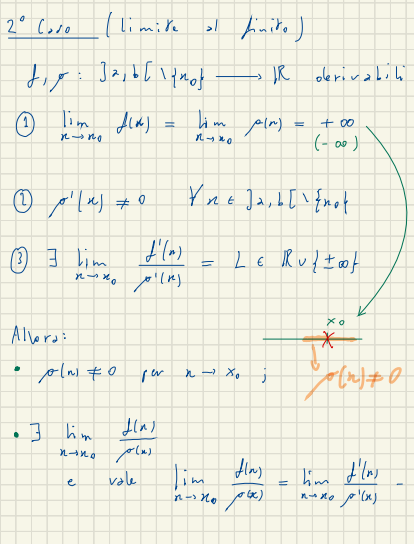 2° Caso (limite al finito)
f, g : ]a, b[ \ {x₀} ⟶ ℝ derivabili
① lim x→x₀ f(x) = lim x→x₀ g(x) = +∞
(-∞)
② g'(x) ≠ 0 ∀ x ∈ ]a, b[ \ {x₀}
③ ∃ lim x→x₀ f'(x)/g'(x) = L ∈ ℝ ∪ {±∞}
x₀
Allora:
• g(x) ≠ 0 per x → x₀ ;
g(x) ≠ 0
• ∃ lim x→x₀ f(x)/g(x)
e vale lim x→x₀ f(x)/g(x) = lim x→x₀ f'(x)/g'(x) -